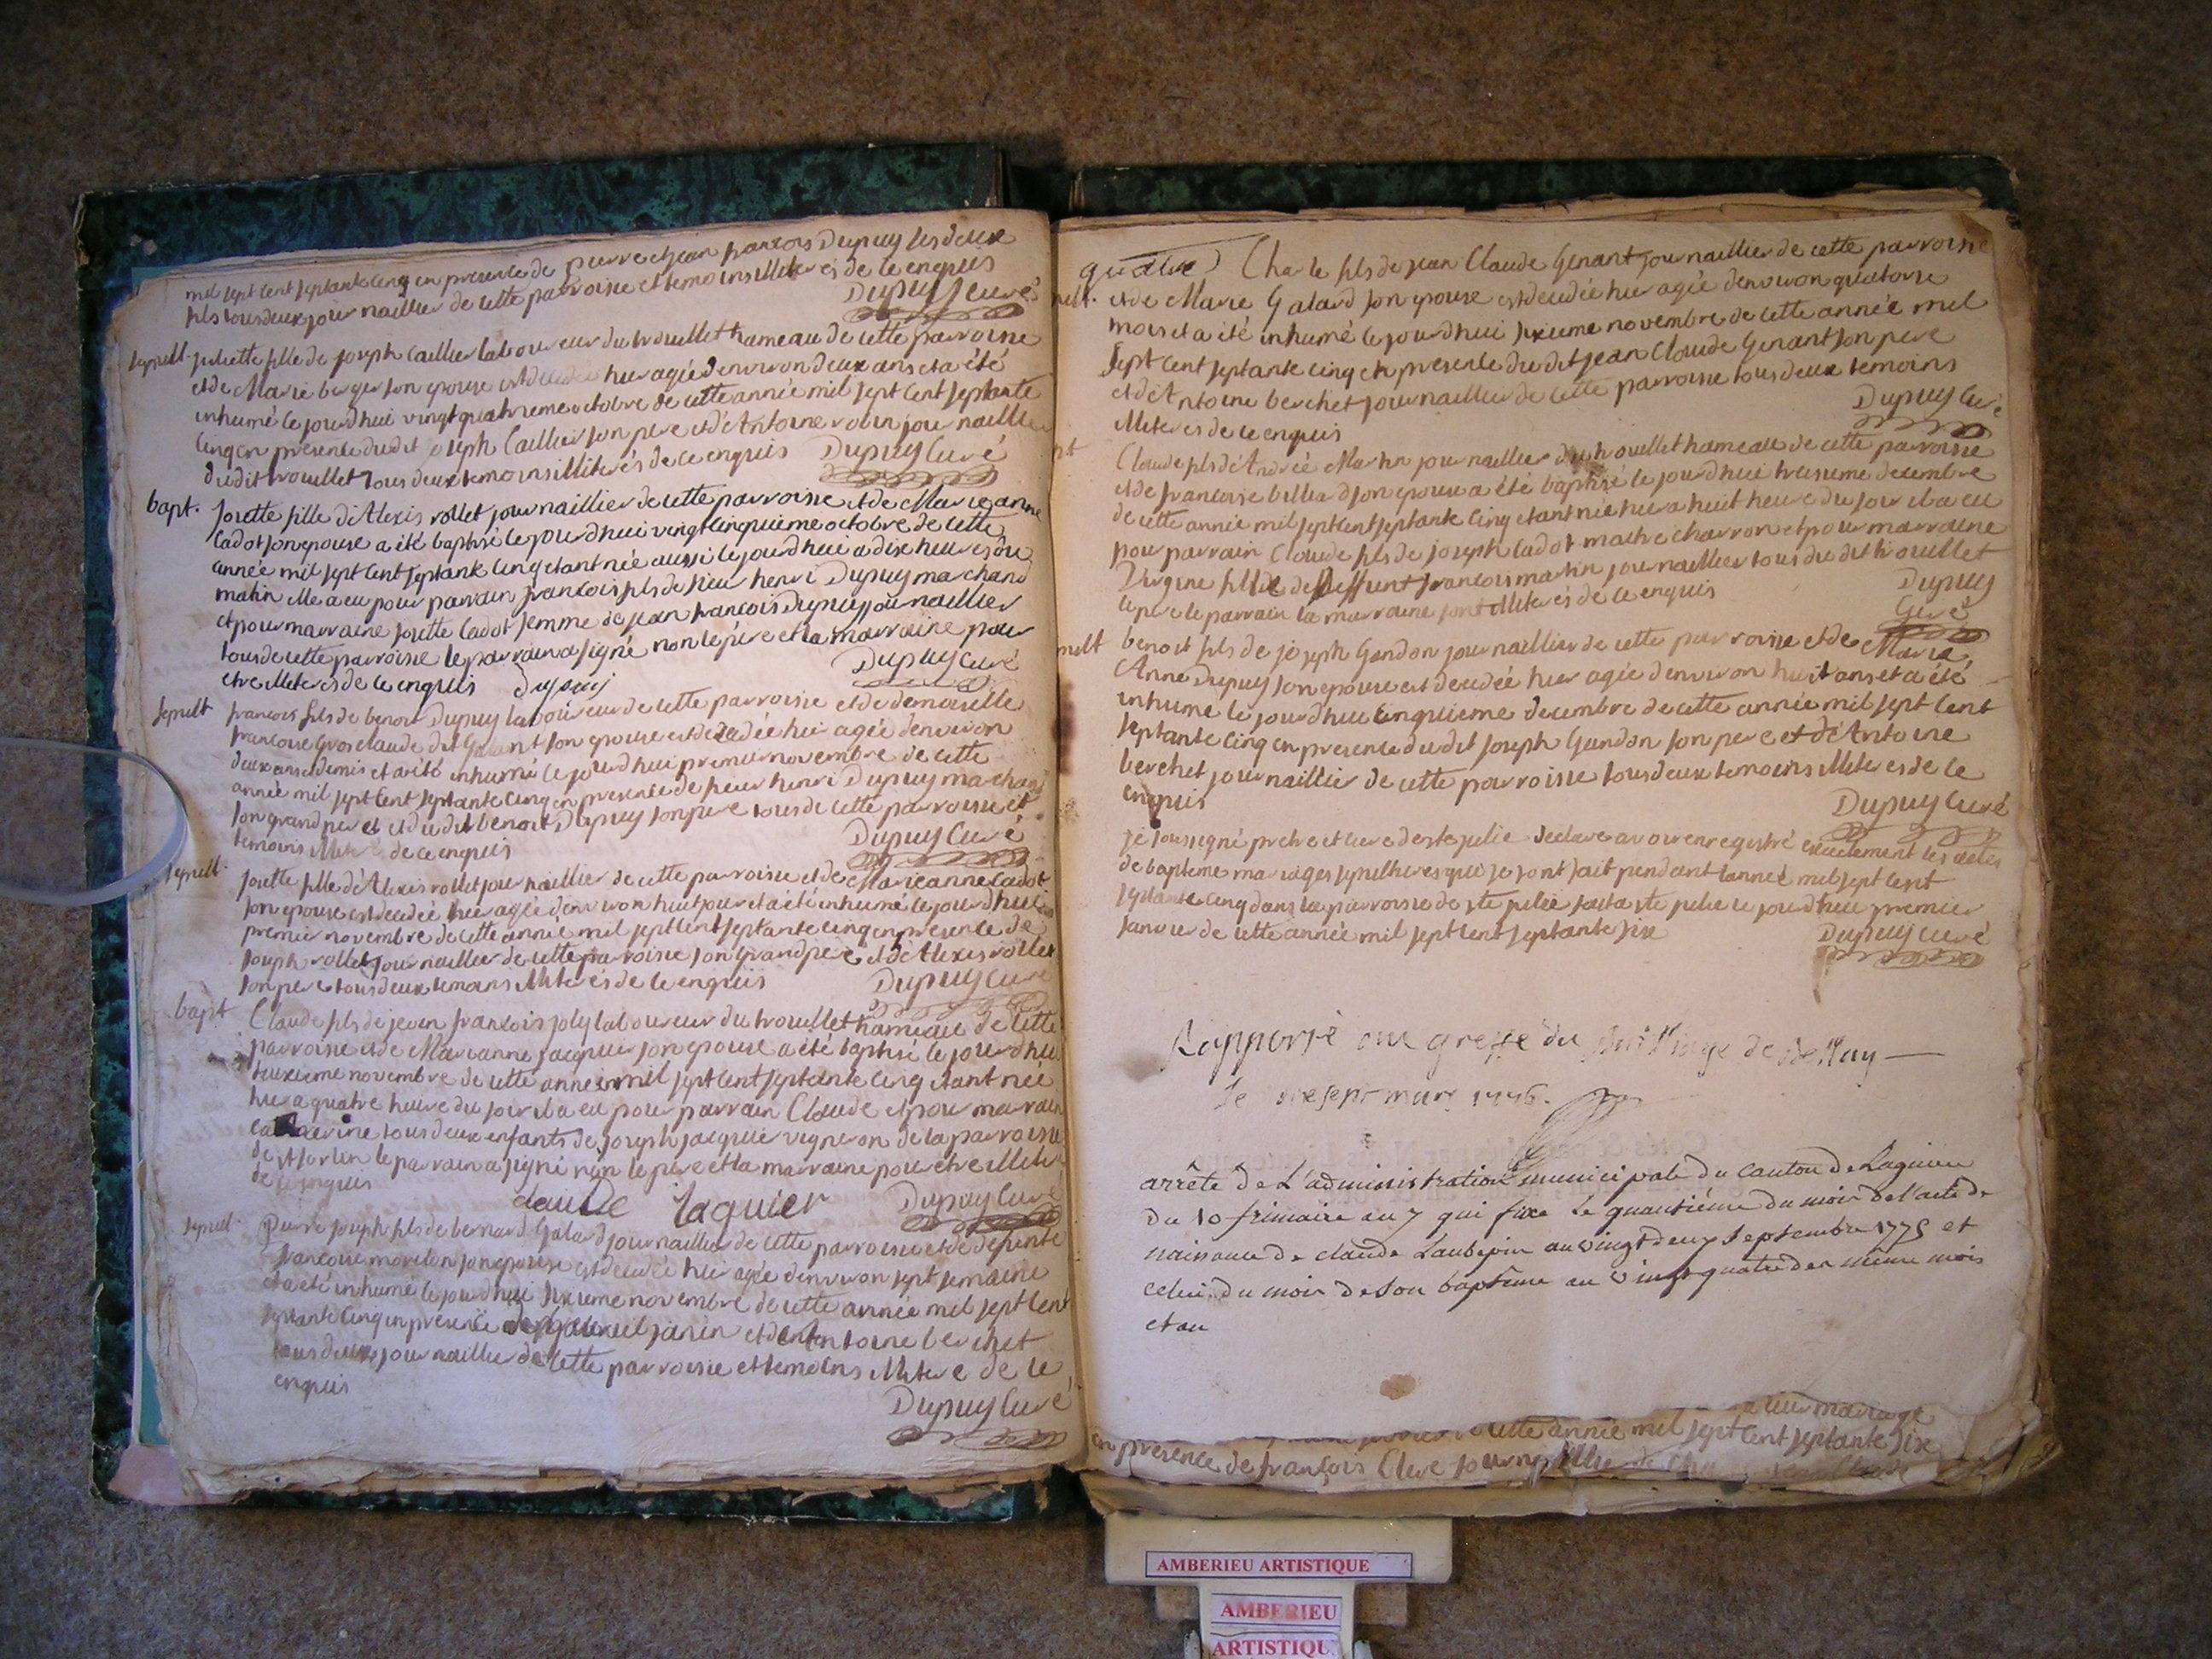 mil sept cent septante cinq en presence de pierre et jean francois Dupuy ses deux
fils tous deux journaillier de cette parroisse et temoins illiterés de ce enquis
Dupuy Curé
sepult juliette fille de joseph Caillier laboureur du trouillet hameau de cette parroisse
et de Marie berger son epouse est decedée hier agée denviron deux ans et a été
inhumé le jourdhui vingt quatrieme octobre de cette année mil sept cent septante
cinq en presence dudit joseph Caillier son pere et d'Antoine robin journaillier
dudit trouillet tous deux temoins illiterés de ce enquis Dupuy Curé
bapt. josette fille d'Alexis rollet journaillier de cette parroisse et de Marieanne
Cadot son epouse a été baptisé le jourdhui vingt cinquieme octobre de cette
année mil sept cent septante cinq etant née aussi le jourdhui a dix heures du
matin elle a eu pour parrain francois fils de sieur henri Dupuy marchand
et pour marraine josette Cadot femme de jean francois Dupuy journaillier
tous de cette parroisse le parrain a signé non le pere et la marraine pour
etre illiterés de ce enquis Dupuy Dupuy Curé
sepult francois fils de benoit Dupuy laboureur de cette parroisse et de demoiselle
francoise Grosclaude dit Galant son epouse est decedée hier agée denviron
deux ans et demis et a été inhumé le jourdhui premier novembre de cette
année mil sept cent septante cinq en presence de sieur henri Dupuy marchand
son grand pere et dudit benoit Dupuy son pere tous de cette parroisse et
temoins de ce enquis Dupuy Curé
sepult. josette fille d'Alexis rollet journaillier de cette parroisse et de Marieanne Cadot
son epouse est decedée hier agée denviron huit jour et a été inhumé le jourdhui
premier novembre de cette année mil sept cent septante cinq en presence de
joseph rollet journaillier de cette parroisse son grand pere et d'Alexis rollet
son pere tous deux temoins illiterés de ce enquis Dupuy Curé
bapt Claude fils de jean francois joly laboureur du trouillet hameau de cette
parroisse et de Marianne jacquier son epouse a été baptisé le jourdhui
novembre de cette année mil sept cent septante cinq etant née
hier a quatre heure du soir il a eu pour parrain Claude et pour marraine
catherine tous deux enfants de joseph jacquier vigneron de la parroisse
de st sorlin le parrain a signé non le pere et la marraine pour etre illiteré
de ce enquis
claude Iaquier Dupuy Curé
sepul. Pierre joseph fils de bernard Galard journaillier de cette parroisse et de defunte
francoise morelon son epouse est decedée hier agée denviron sept semaine
et a été inhumé le jourdhui sixieme novembre de cette année mil sept cent
septante cinq en presence de janin et d'Antoine berchet
tous deux journaillier de cette parroisse et temoins illiteré de ce
enquis
Dupuy Curé
quatre Charle fils de jean Claude Genant journaillier de cette parroisse
et de Marie Galard son epouse est decedée hier agée denviron quatorse
mois et a été inhumé le jourdhui sixieme novembre de cette année mil
sept cent septante cinq en presence du dit jean Claude Genant son pere
et d'Antoine berchet journaillier de cette parroisse tous deux temoins
illiterés de ce enquis
Dupuy Curé
Claude fils d'André Martin journaillier du trouillet hameau de cette parroisse
et de francoise billiard son epouse a été baptisé le jourdhui treisieme decembre
de cette année mil sept cent septante cinq etant née hier a huit heure du soir il a eu
pour parrain Claude fils de joseph Cadot maitre charron et pour marraine
Virgine fille de deffunt francois martin journaillier tous du dit trouillet
le pere le parrain la marraine sont illiterés de ce enquis
Dupuy
Curé
benoit fils de joseph Gandon journaillier de cette parroisse et de Marie
Anne Dupuy son epouse est decedée hier agée denviron huit ans et a été
inhumé le jourdhui cinquieme decembre de cette année mil sept cent
septante cinq en presence du dit joseph Gandon son pere et d'Antoine
berchet journaillier de cette parroisse tous deux temoins illiterés de ce
enquis
Dupuy Curé
je soussigné pretre et curé de ste julie declare avoir enregistré exactement les actes
de bapteme mariages sepultures qui se sont fait pendant lannée mil sept cent
septante cinq dans la parroisse de ste julie fait a ste julie le jourdhui premier
janvier de cette année mil sept cent septante six
Dupuy curé
Rapporté au greffe du de
le mars 1776.
arrêté de L'administration municipale du canton de Lagnieu
du 10 frimaire an 7 qui fixe le quantiéme du mois de l'acte de
naissance de claude Laubepin au vingt deux septembre 1775 et
celui du mois de son baptême au vingt quatre des même mois
et an
mariage
cette année mil sept cent septante six
en presence de françois Clerc journaillier
AMBERIEU ARTISTIQUE
AMBERIEU
ARTISTIQU